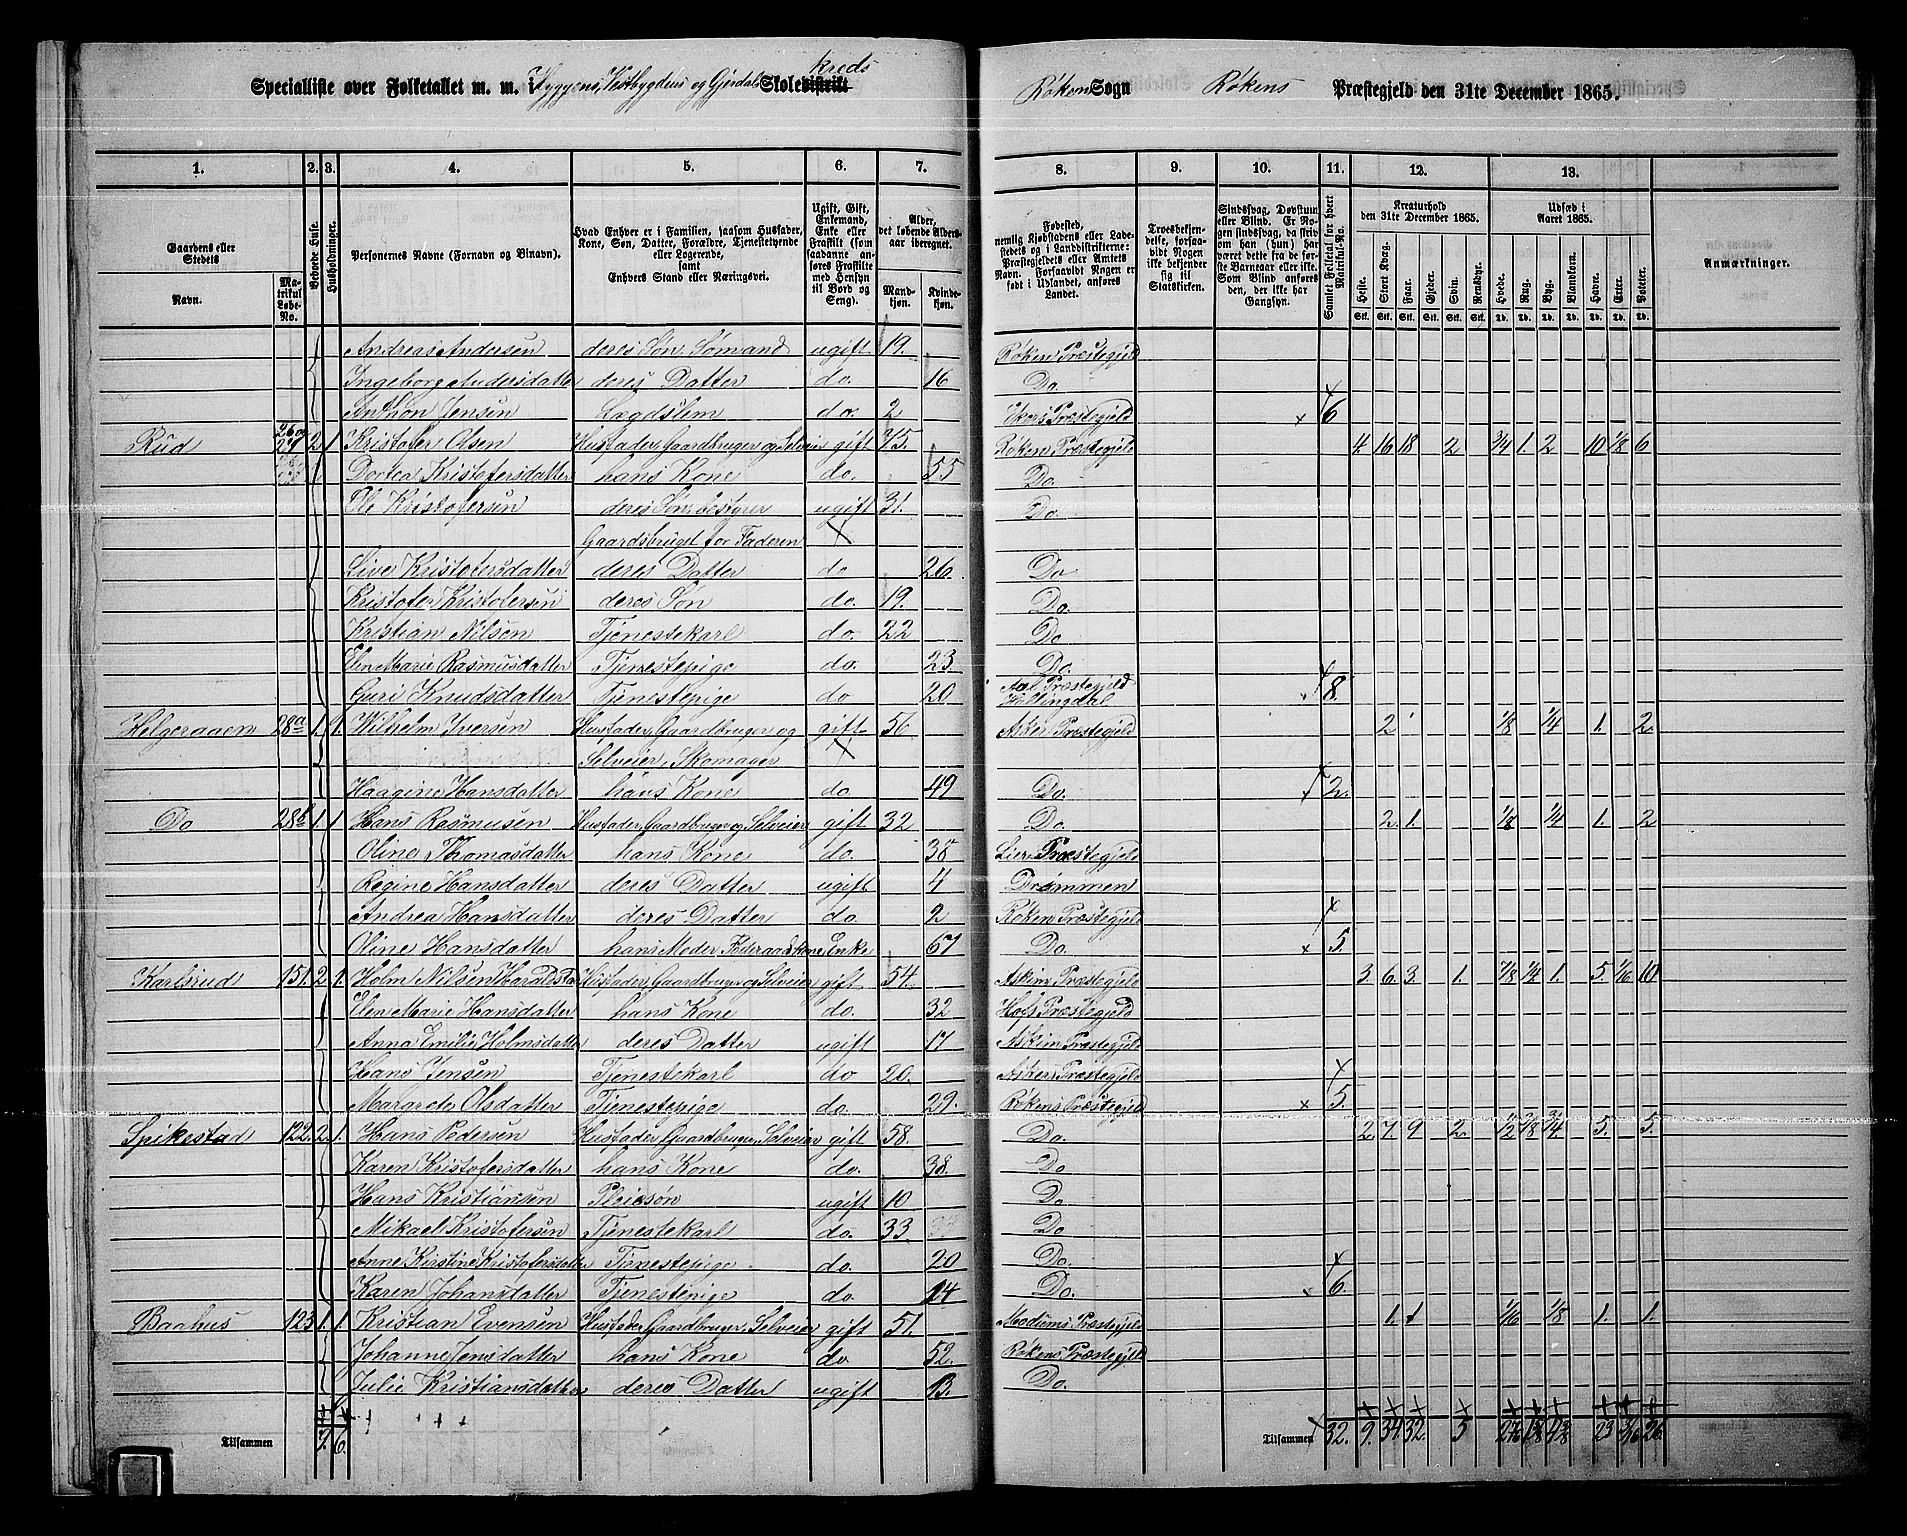 Specialliste over Folketallet m. m. i Hyggens, Vestbygdens og Gjerdals Skoledistrikt kreds Røken Sogn Røkens Præstegjeld den 31te December 1865.
1. 2. 3. 4. 5. 6. 7. 8. 9. 10. 11. 12. 13.
Gaardens eller Stedets Navn. Matrikul Løbe-No. Beboede Huse. Husholdninger. Personernes Navne (Fornavn og Binavn). Hvad Enhver er i Familien, saasom Husfader, Kone, Søn, Datter, Forældre, Tjenestetyende eller Logerende, samt Enhvers Stand eller Næringsvei. Ugift, Gift, Enkemand, Enke eller Fraskilt (som saadanne anføres Fraskilte med Hensyn til Bord og Seng). Alder, det løbende Alders-aar iberegnet. Mandkjøn. Kvindekjøn.
Fødested, nemlig Kjøbstadens eller Ladestedets og i Landdistrikterne: Præstegjeldets eller Amtets Navn. Forsaavidt Nogen er født i Udlandet, anføres Landet. Troesbekjendelse, forsaavidt Nogen ikke bekjender sig til Statskirken. Sindssvag, Døvstum eller Blind. Er Nogen sindssvag, da skriv om han (hun) har været dette fra de første Barneaar eller ikke. Som Blind anføres den, der ikke har Gangsyn. Samlet Folketal for hvert Matrikul-No. Kreaturhold den 31te December 1865. Heste. Stort Kvæg. Faar. Gjeder. Sviin. Rensdyr. Udsæd i Aaret 1865. Hvede. Rug. Byg. Blandkorn. Havre. Erter. Poteter. Anmærkninger.
Andreas Andersen deres Søn, Sømand ugift 19. Røkens Præstegjeld
Ingeborg Andersdatter deres Datter do. 16 Do.
Anthon Jensen Lægdslem do. 2 Ekers Præstegjeld 6
Rud 26 og 27 2 1 Kristofer Olsen Husfader, Gaardbruger og Selveier gift 75. Røkens Præstegjeld 4 16 18 2 3/4 1. 2 10 1/8 6
Dortea Kristofersdatter hans Kone do. 55 Do.
Ole Kristofersen deres Søn, bestyrer ugift 31. Do.
Gaardsbruget for Faderen
Live Kristofersdatter deres Datter do 26. Do
Kristofer Kristofersen deres Søn do. 19. Do.
Kristian Nilsen Tjenestekarl do. 22 Do
Elen Marie Rasmusdatter Tjenestepige do. 23 Do.
Guri Knudsdatter Tjenestepige do 20 Aal Præstegjeld Hallingdal 8.
Helgeraaen 28a 1. 1. Wilhelm Iversen Husfader, Gaardbruger og gift 56. Asker Præstegjeld 2 1/8 1/4 1. 2.
Selveier, Skomager
Haagine Hansdatter hans Kone do 49 Do. 2.
Do 28b 1. 1 Hans Rasmusen Husfader, Gaardbruger og Selveier gift 32 Do. 2. 1. 1/8 1/4 1. 2
Oline Thomasdatter hans Kone do. 38 Lier Præstegjeld
Regine Hansdatter deres Datter ugift 4 Drammen
Andrea Hansdatter deres Datter do. 2 Røkens Præstegjeld
Oline Hansdatter hans Moder, Føderaadskone Enke 67 Do. 5.
Karlsrud 151. 2. 1. Holm Nilsen Husfader, Gaardbruger og Selveier gift 54. Askim Præstegjeld 3. 6. 3. 1. 7/8 1/4 1. 5. 1/16 10
Elen Marie Hansdatter hans Kone do. 32 Hofs Præstegjeld
Anna Emilie Holmsdatter deres Datter ugift 17 Askim Præstegjeld
Hans Jensen Tjenestekarl do 20. Asker Præstegjeld
Margrete Olsdatter Tjenestepige do. 29. Røkens Præstegjeld 5.
Spikestad 122. 2. 1. Hans Pedersen Husfader, Gaardbruger, Selveier gift 58. Do. 2 7. 9 2. 1/2 7/8 3/4. 5. 5.
Karen Kristofersdatter hans Kone do. 38. Do
Hans Kristiansen Pleiesøn ugift 10 Do
Mikael Kristofersen Tjenestekarl do. 33 Do
Anne Kirstine Kristofersdatter Tjenestepige do. 20 Do.
Karen Johansdatter Tjenestepige do. 14 Do. 6.
Baahus 123 1. 1 Kristian Evensen Husfader, Gaardbruger, Selveier gift 51. Modums Præstegjeld 1. 1 1/16 1/8 1. 1.
Johanne Jensdatter hans Kone do. 52. Røkens Præstegjeld
Julie Kristiansdatter deres Datter ugift 13. Do.
Tilsammen 9. 6. Tilsammen 32. 9. 34 32. 5 23 3/16 26